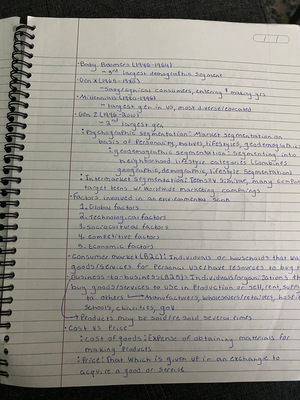 · Baby Boomers (1946-1964)
- 2nd largest demographic segment
· Gen X (1965-1980)
- Savvy/cynical consumers, entering $ making yrs
· Millennials
- largest gen in US, most diverse/educated
· Gen Z
- 2nd largest gen
: Psychographic Segmentation: Market segmentation on
basis of Personality, motives, lifestyles, geodemographics
: geodemographic segmentation: segmenting into
neighborhood lifestyle categories (combines
geographic, demographic, lifestyle segmentation)
: Intermarket segmentation: many
target teens w/ worldwide marketing campaigns
· Factors involved in an environmental scan
1. Global factors
2. Technological factors
3. Sociocultural factors
4. Competitive factors
5. Economic factors
· Consumer market (B2C): Individuals or households that
goods/services for Personal use/have resources to buy
· Business-to-business (B2B): Individuals/organizations
buy goods/services to use in Production or sell, rent,
to others Manufacturers, wholesalers/retailers,
schools, charities, gov.
Products may be sold/re sold several times
· Cost vs Price
: cost of goods: Expense of obtaining materials for
making Products
: Price: That which is given up in an exchange to
acquire a good or service